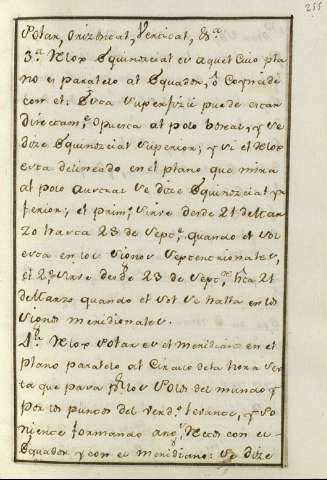 255
Polar, Orizhical, Vercical, &ª
3.ª Relox Equinozcial es aquel cuio pla
no es paralelo al Equador, ô Coincide
con el: Esta superficie puede estar
direccam.te opuesta al polo boreal, y se
dize Equinozcial superior; y si el Relox
esta delineado en el plano que mira
al polo Austral se dize Equinozcial yn
ferior; el prim.º sirve desde 21 de Mar
zo hasta 23 de Sept.e quando el sol
esta en los signos septentrionales,
el 2.º sirve desde 23 de Sept.e hta 21
de Marzo quando el sol se halla en los
signos meridionales.
4.ª Relox Polar es el meridiano en el
plano paralelo al Circulo de la hora sex
ta que pasa p.r los Polos del mundo y
por los puntos del verd.º levante, y Po
niente formando ang.s rectos con el
Equador y con el meridiano: se dize